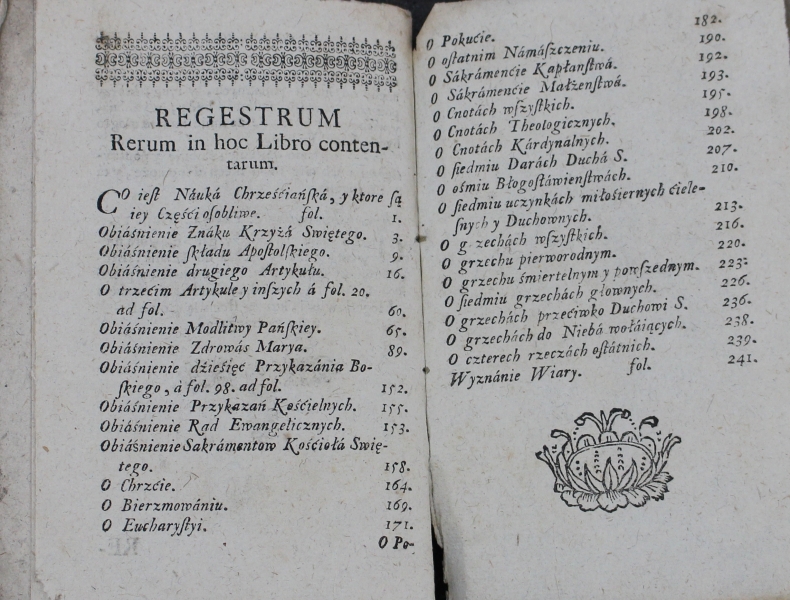 REGESTRUM
Rerum in hoc Libro conten-
tarum.
CO ieſt Náuká Chrześćiáńſká, y ktore ſą
iey Częśći oſobliwe. fol. 1.
Obiáśnienie Znáku Krzyżá Swiętego. 3.
Obiáśnienie ſkłádu Apoſtolſkiego. 9.
Obiáśnienie drugiego Artykułu. 16.
O trzećim Artykule y inſzych á fol. 20.
ad fol. 60.
Obiáśnienie Modlitwy Páńſkiey. 65.
Obiáśnienie Zdrowáś Marya. 89.
Obiáśnienie dźieśięć Przykazánia Bo-
ſkiego, á fol. 98. ad fol. 152.
Obiáśnienie Przykazáń Kośćielnych. 155.
Obiáśnienie Rad Ewangelicznych. 153.
Obiáśnienie Sakrámentow Kośćiołá Swię-
tego. 158.
O Chrzćie. 164.
O Bierzmowániu. 169.
O Eucharyſtyi. 171.
O Po-
O Pokućie. 182.
O oſtatnim Námáſzczeniu. 190.
O Sákrámenćie Kapłańſtwá. 192.
O Sákrámenćie Małżeńſtwá. 193.
O Cnotách wſzyſtkich. 195.
O Cnotách Theologicznych. 198.
O Cnotách Kárdynálnych. 202.
O śiedmiu Darách Duchá S. 207.
O ośmiu Błogoſłáwieńſtwách. 210.
O śiedmiu uczynkách miłośiernych ćiele-
ſnych y Duchownych. 213.
O g zechách wſzyſtkich. 216.
O grzechu pierworodnym. 220.
O grzechu śmiertelnym y powſzednym. 223.
O śiedmiu grzechách głownych. 226.
O grzechách przećiwko Duchowi S. 236.
O grzechách do Niebá wołáiących. 238.
O czterech rzeczách oſtátnich. 239.
Wyznánie Wiary. fol. 241.